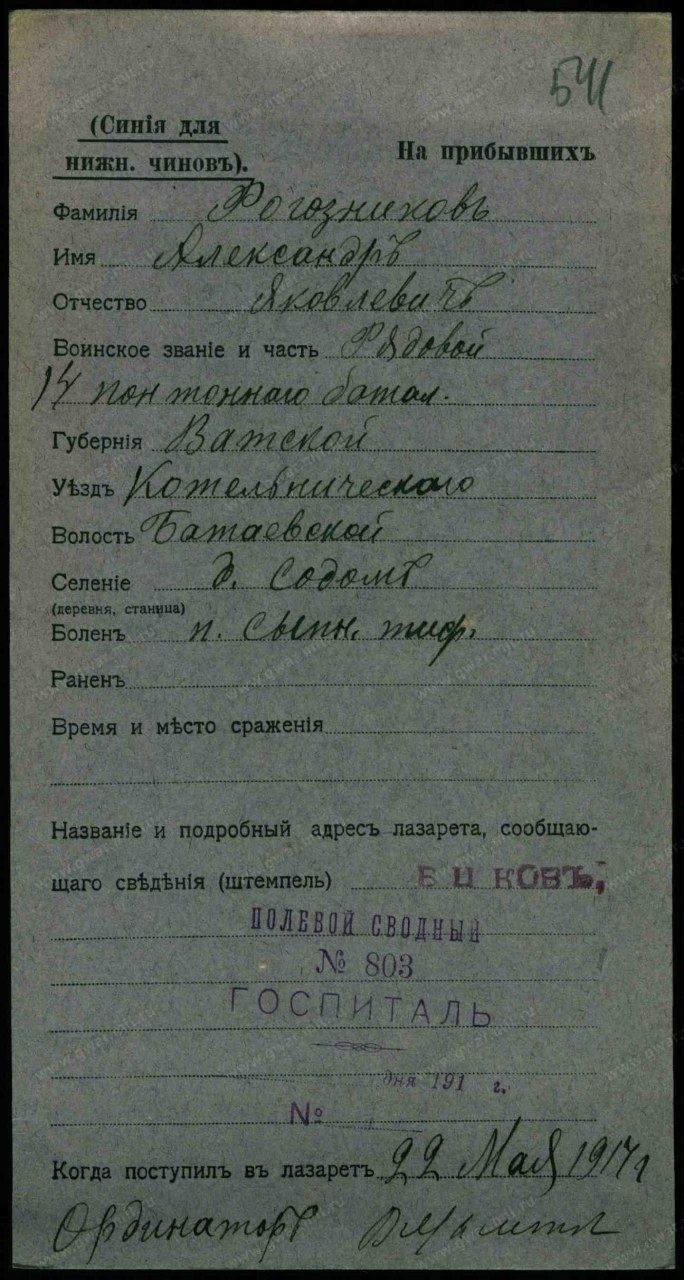 541
(Синія для
нижн. чиновъ).
На прибывшихъ
Фамилія Рогозниковъ
Имя Александръ
Отчество Яковлевичъ
Воинское званіе и часть Рядовой
14 понтоннаго батал.
Губернія Вятской
Уѣздъ Котельническаго
Волость Батаевской
Селеніе д. Содомъ
(деревня, станица)
Боленъ п. сыпн. тиф.
Раненъ
Время и мѣсто сраженія
Названіе и подробный адресъ лазарета, сообщаю-
щаго свѣдѣнія (штемпель)
ПОЛЕВОЙ СВОДНЫЙ
№ 803
ГОСПИТАЛЬ
дня 191 г.
№
Когда поступилъ въ лазаретъ 22 Мая 1917 г
Ординаторъ